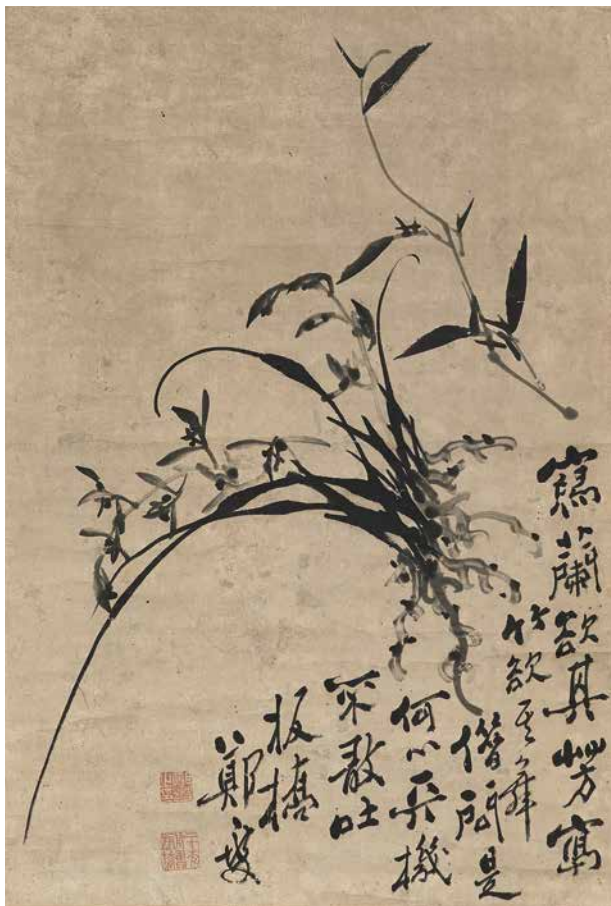 寫蘭欲其芳寫
竹欲其舞
借問是
何心天機
不敢吐
板橋
鄭燮